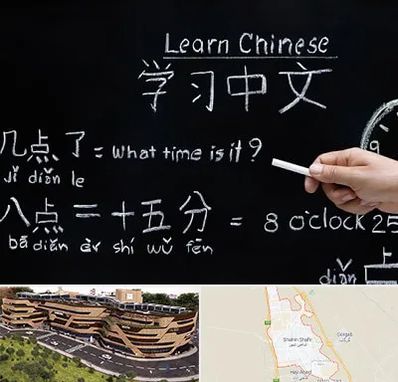 Learn Chinese
学习中文
几点了 = What time is it?
Jǐ diǎn le
9
八点二十五分 = 8 o'clock 25
bā diǎn èr shí wǔ fēn
diǎn
Shahin Shahr
شاهین شهر
Gorgab
گرگاب